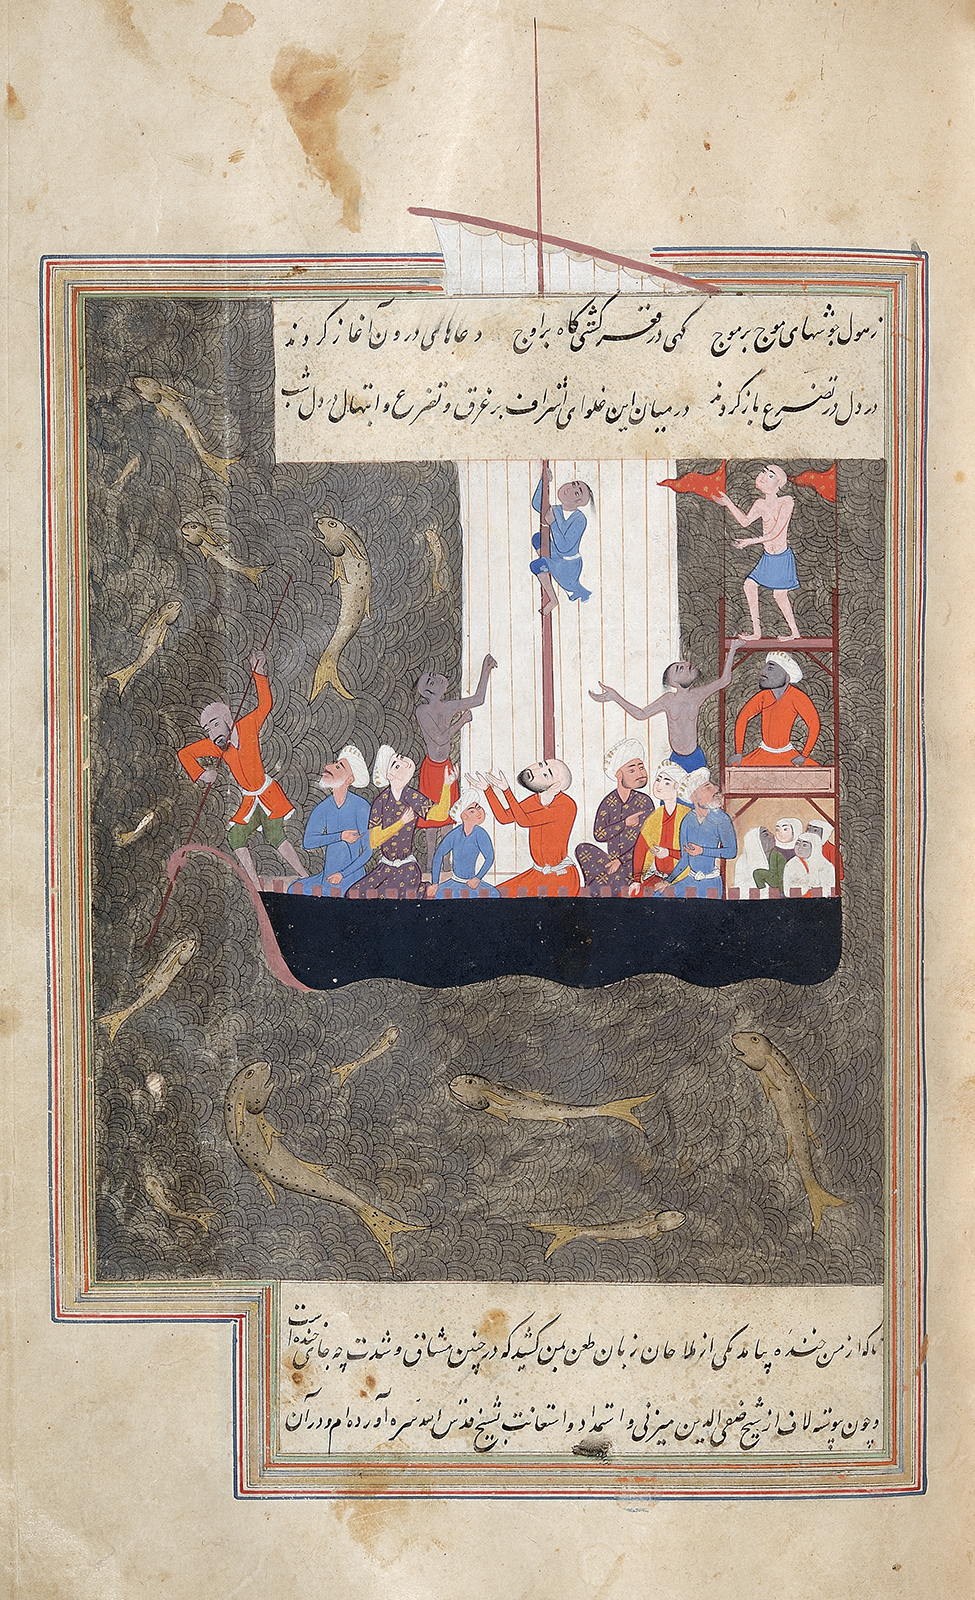 ز هول جوشهای موج بر موج گهی در قعر کشتی گاه بر اوج دعاهای درون آغاز کردند
در دل در تضرع باز کردند در میان این غلوای اشراف بر غرق و تضرع و ابتهال در دل شب
ناگاه از من خنده پیامد یکی از ملاحان زبان طعن بمن کشید که در چنین مشاق و شدت چه جای خنده است
و چون پیوسته لاف از شیخ صفی الدین میزنی و استمداد و استعانت بشیخ قدس الله سره آورده‌ام و در آن